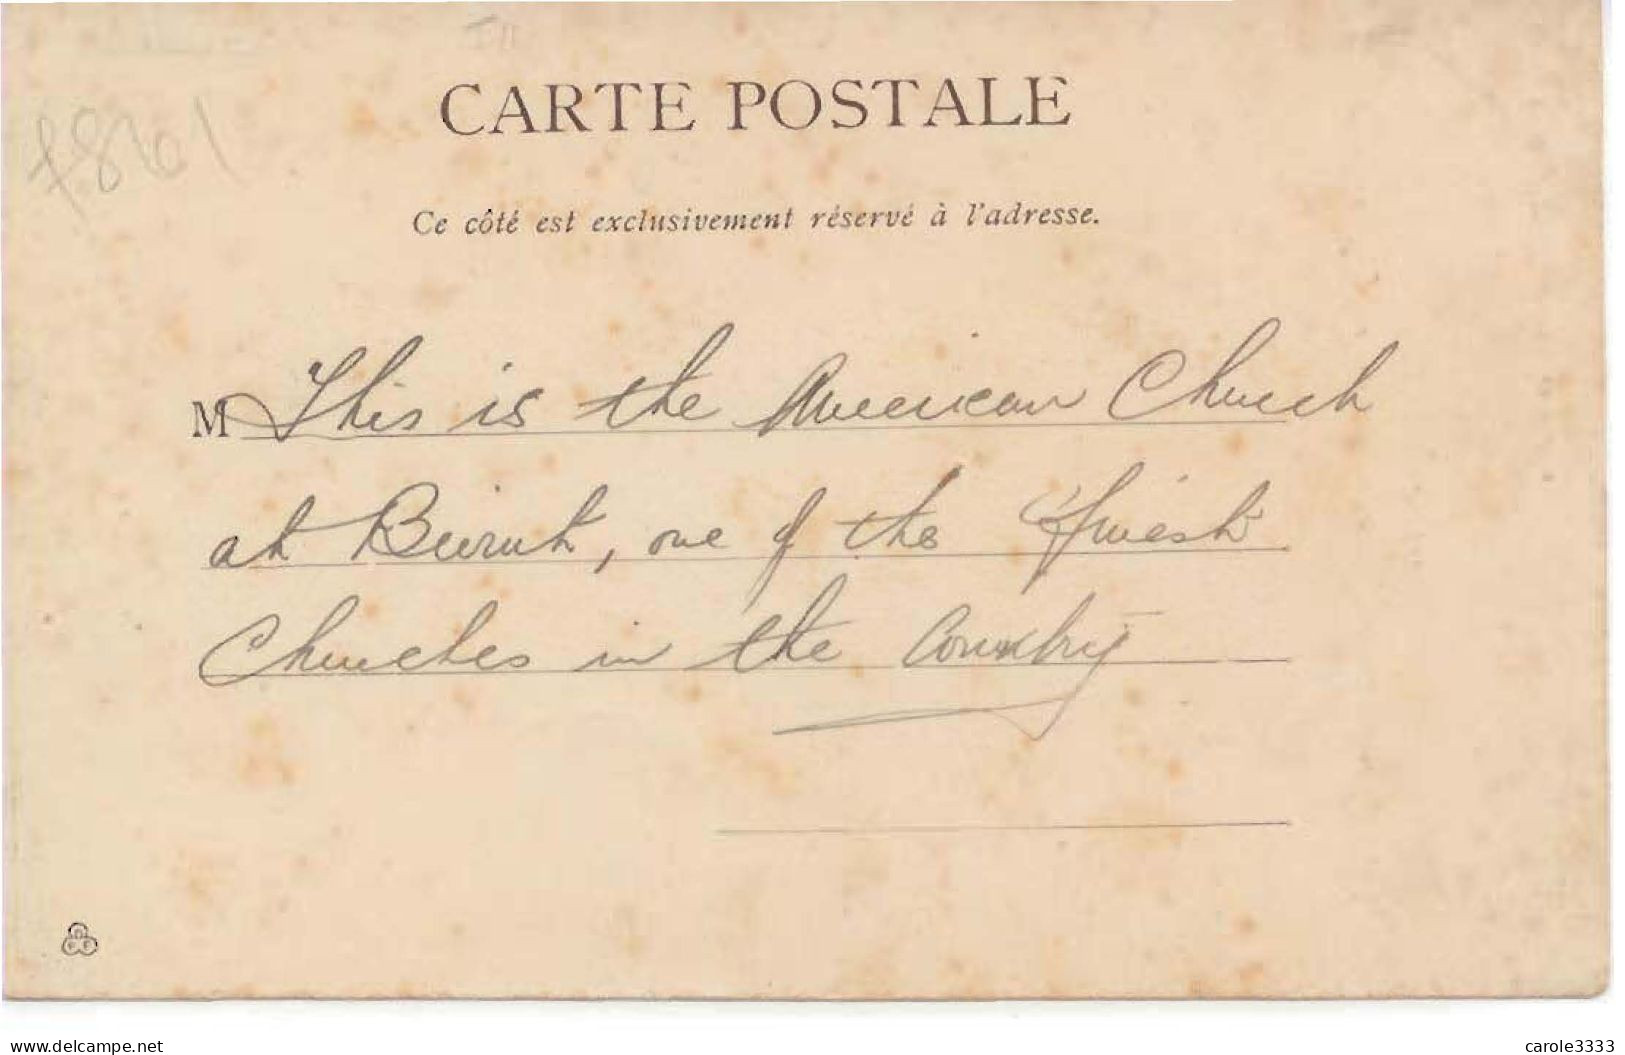 CARTE POSTALE
Ce côté est exclusivement réservé à l'adresse.
M This is the American Church
at Beirut, one of the finest
Churches in the Country
www.delcampe.net
carole3333